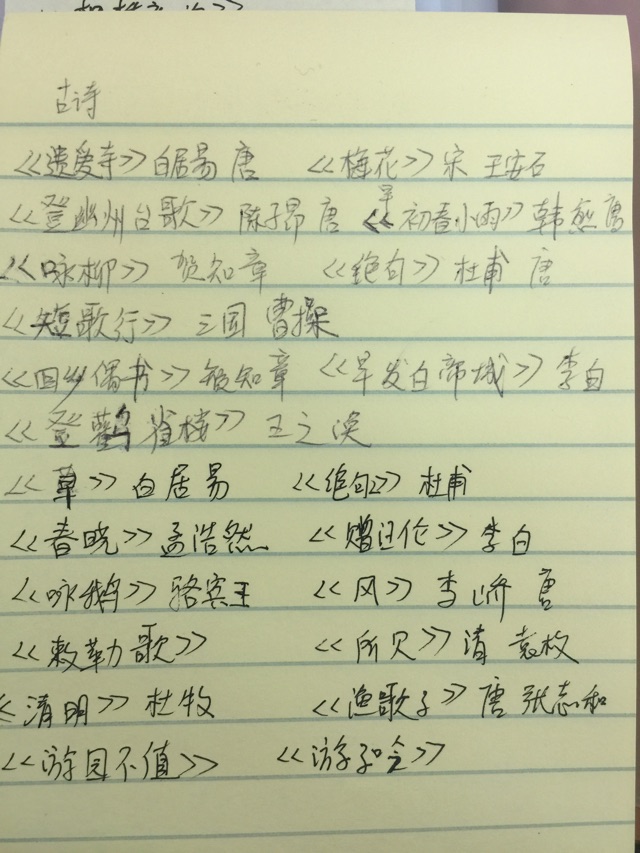 古诗
《遗爱寺》白居易 唐 《梅花》宋 王安石
《登幽州台歌》陈子昂 唐 《早初春小雨》韩愈 唐
《咏柳》贺知章 《绝句》杜甫 唐
《短歌行》三国 曹操
《回乡偶书》贺知章 《早发白帝城》李白
《登鹳雀楼》王之涣
《草》白居易 《绝句2》杜甫
《春晓》孟浩然 《赠汪伦》李白
《咏鹅》骆宾王 《风》李峤 唐
《敕勒歌》 《所见》清 袁枚
《清明》杜牧 《渔歌子》唐 张志和
《游园不值》 《游子吟》